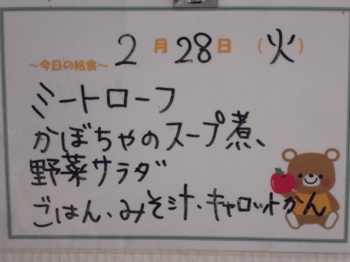 2月28日(火)
～今日の給食～
ミートローフ
かぼちゃのスープ煮、
野菜サラダ
ごはん、みそ汁、キャロットかん